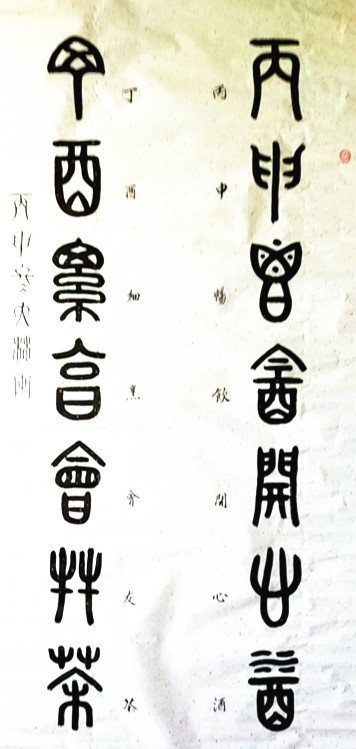 丙申暢飲開心酒
丙申暢飲開心酒
丁酉細烹會友茶
丁酉細烹會友茶
丙申